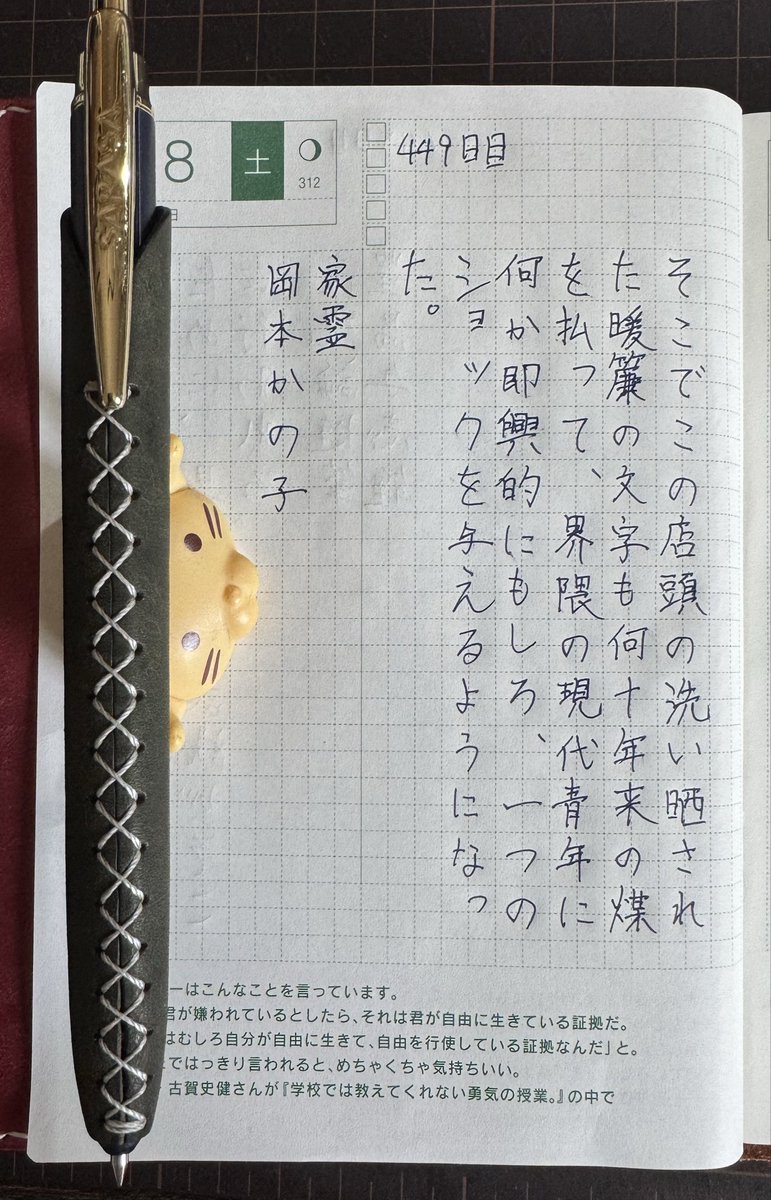 SARASA
8
土
312
日
449日目
そこでこの店頭の洗い晒され
た暖簾の文字も何十年来の煤
を払って、界隈の現代青年に
何か即興的にもしろ、一つの
ショックを与えるようになっ
た。
家霊
岡本かの子
ーはこんなことを言っています。
君が嫌われているとしたら、それは君が自由に生きている証拠だ。
はむしろ自分が自由に生きて、自由を行使している証拠なんだ」と。
ではっきり言われると、めちゃくちゃ気持ちいい。
古賀史健さんが『学校では教えてくれない勇気の授業。』の中で